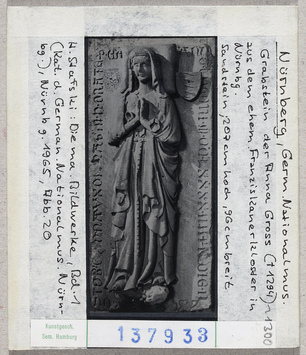 Nürnberg, Germ. Nationalmus.
Grabstein der Anna Gross († 1294) ~1300
aus dem ehem. Franziskanerkloster in
Nürnbg.
Sandstein, 207 cm hoch, 96 cm breit
H. Stafski: Die ma. Bildwerke Bd. 1
(Kat. d. German. Nationalmus. Nürn-
bg.), Nürnbg. 1965, Abb. 20
Kunstgesch.
Sem. Hamburg
137933